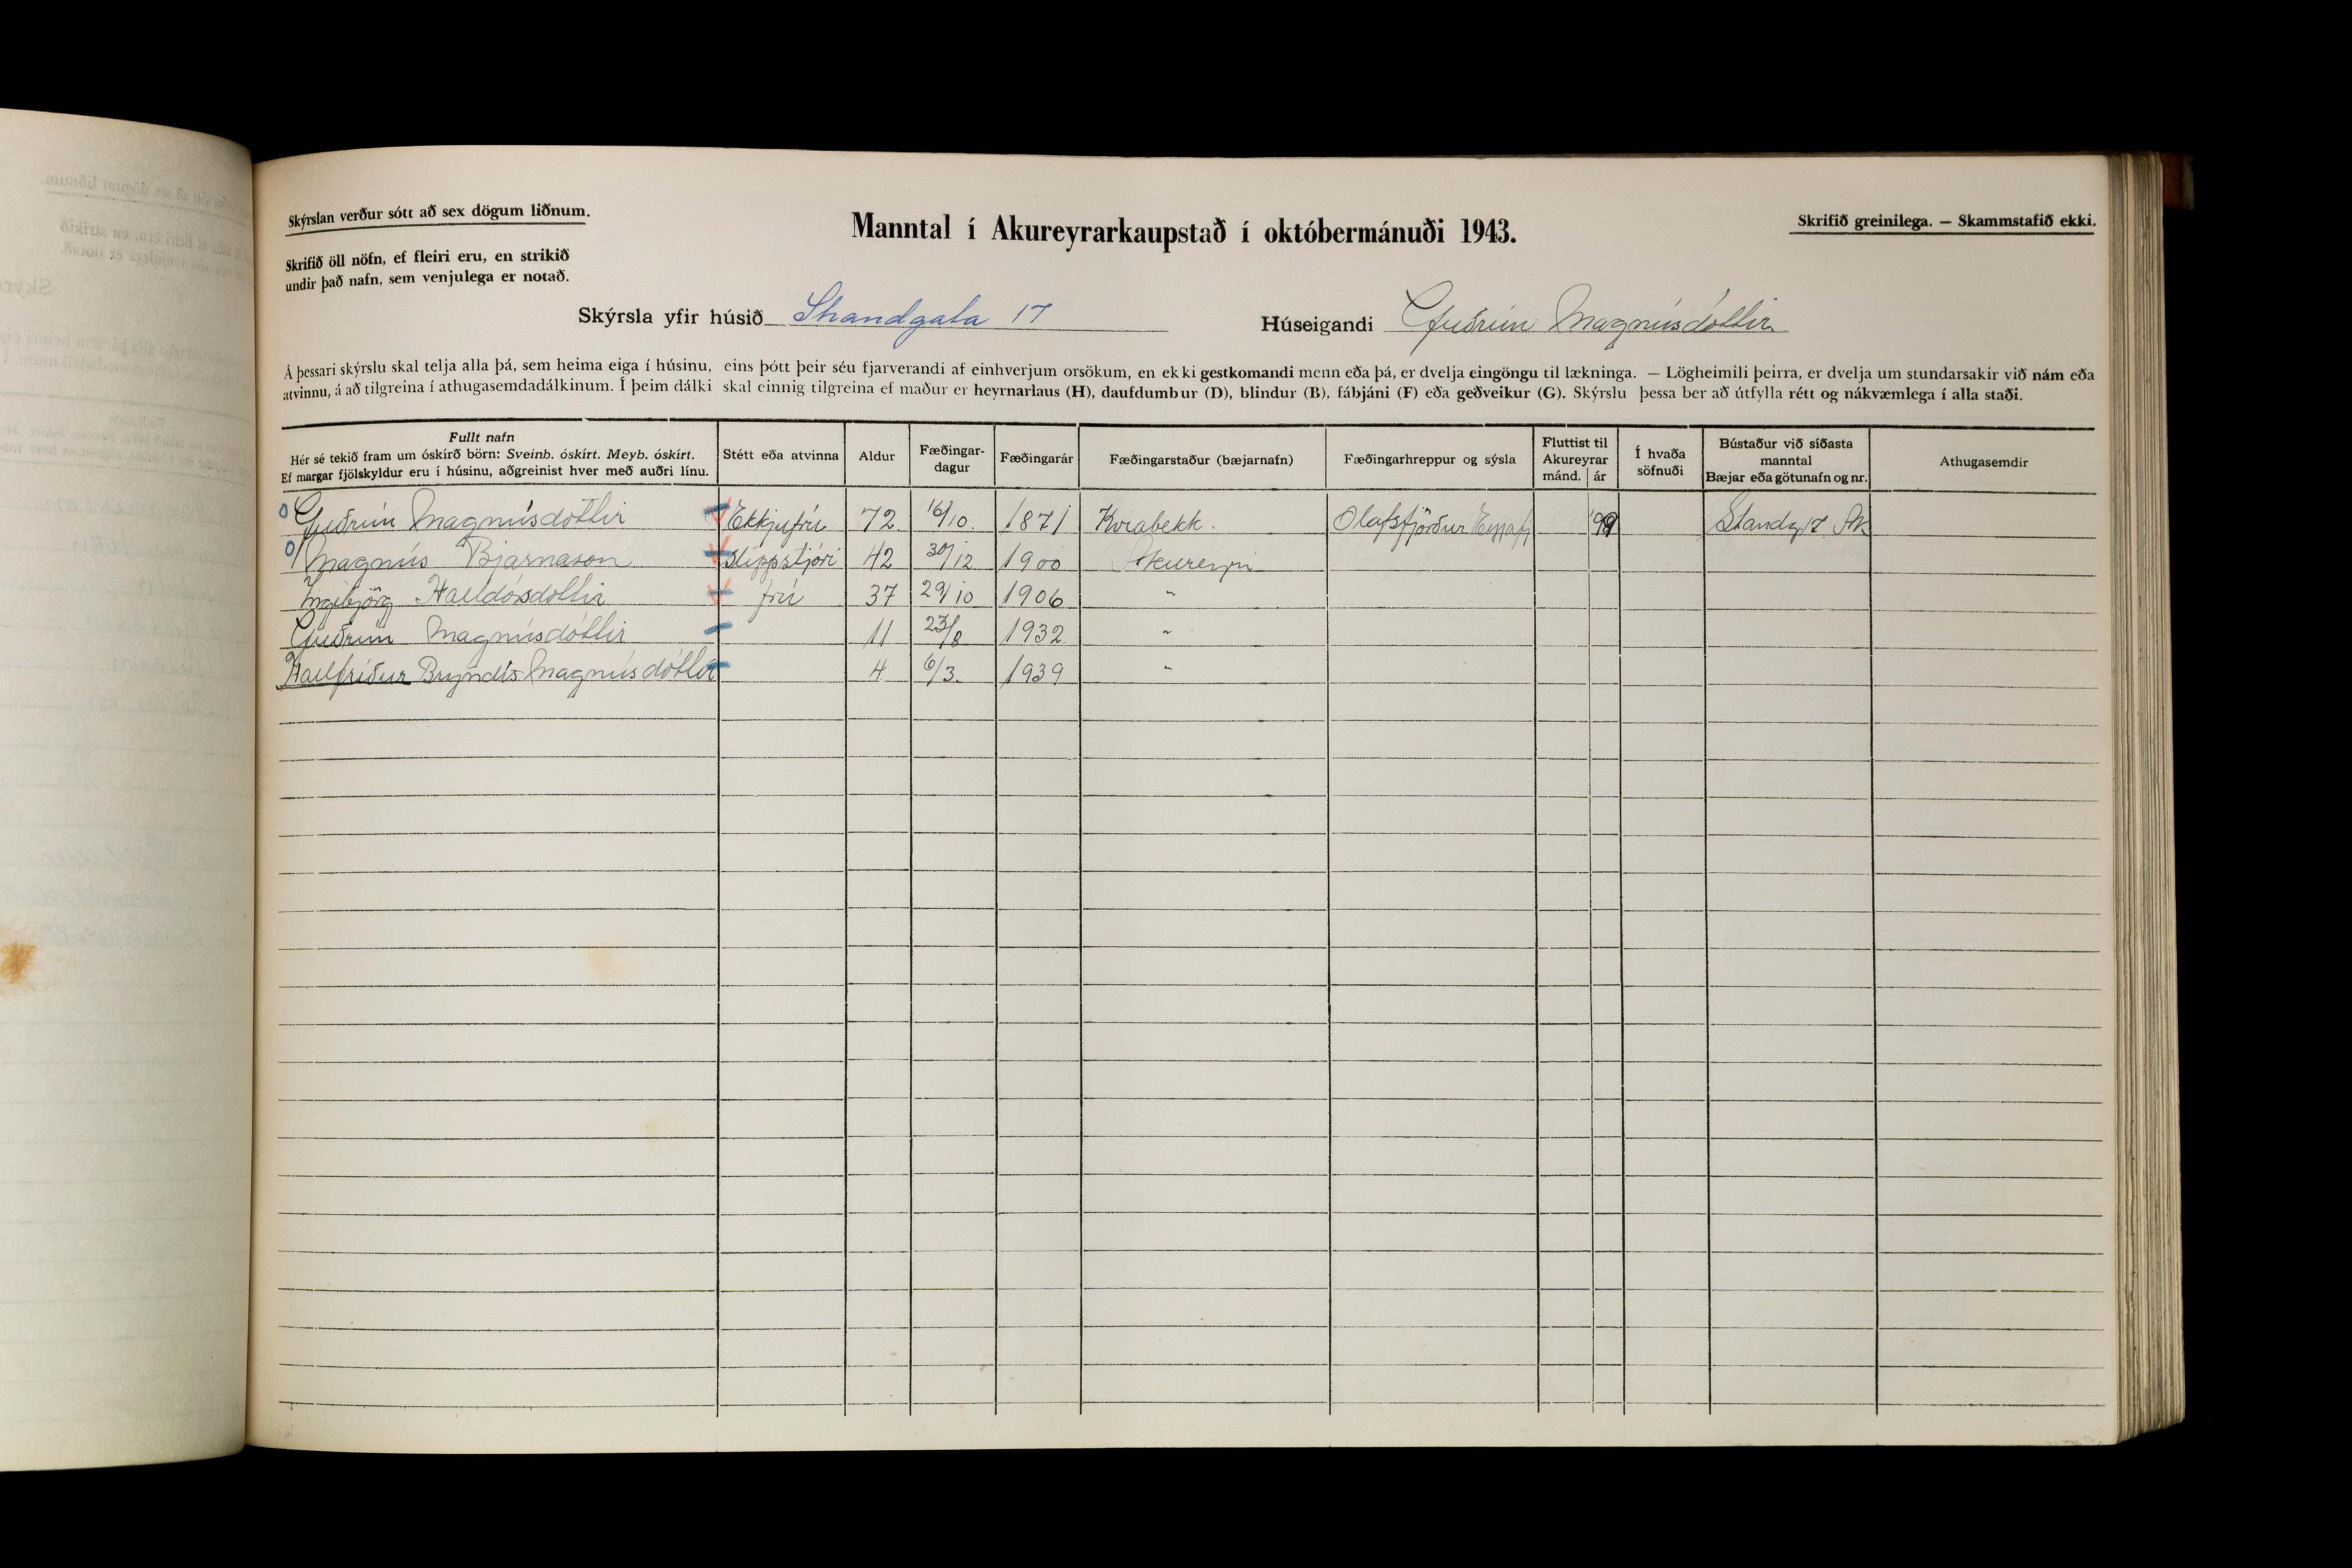 Skýrslan verður sótt að sex dögum liðnum.
Manntal í Akureyrarkaupstað í októbermánuði 1943.
Skrifið greinilega. — Skammstafið ekki.
Skrifið öll nöfn, ef fleiri eru, en strikið
undir það nafn, sem venjulega er notað.
Skýrsla yfir húsið Strandgata 17 Húseigandi Guðrún Magnúsdóttir
Á þessari skýrslu skal telja alla þá, sem heima eiga í húsinu, eins þótt þeir séu fjarverandi af einhverjum orsökum, en ekki gestkomandi menn eða þá, er dvelja eingöngu til lækninga. — Lögheimili þeirra, er dvelja um stundarsakir við nám eða
atvinnu, á að tilgreina í athugasemdadálkinum. Í þeim dálki skal einnig tilgreina ef maður er heyrnarlaus (H), daufdumbur (D), blindur (B), fábjáni (F) eða geðveikur (G). Skýrslu þessa ber að útfylla rétt og nákvæmlega í alla staði.
Fullt nafn
Hér sé tekið fram um óskírð börn: Sveinb. óskírt. Meyb. óskírt.
Ef margar fjölskyldur eru í húsinu, aðgreinist hver með auðri línu.
Stétt eða atvinna
Aldur
Fæðingar-
dagur
Fæðingarár
Fæðingarstaður (bæjarnafn)
Fæðingarhreppur og sýsla
Fluttist til
Akureyrar
mánd. ár
Í hvaða
söfnuði
Bústaður við síðasta
manntal
Bæjar eða götunafn og nr.
Athugasemdir
Guðrún Magnúsdóttir Ekkjufrú 72 16/10. 1871 Kvíabekk. Olafsfjörður Eyjafj Strandg 17 Ak
Magnús Bjarnason Slippstjóri 42 30/12 1900 Akureyri
Ingibjörg Halldórsdóttir frú 37 29/10 1906 "
Guðrún Magnúsdóttir 11 23/8 1932 "
Hallfríður Bryndís Magnúsdóttir 4 6/3. 1939 "